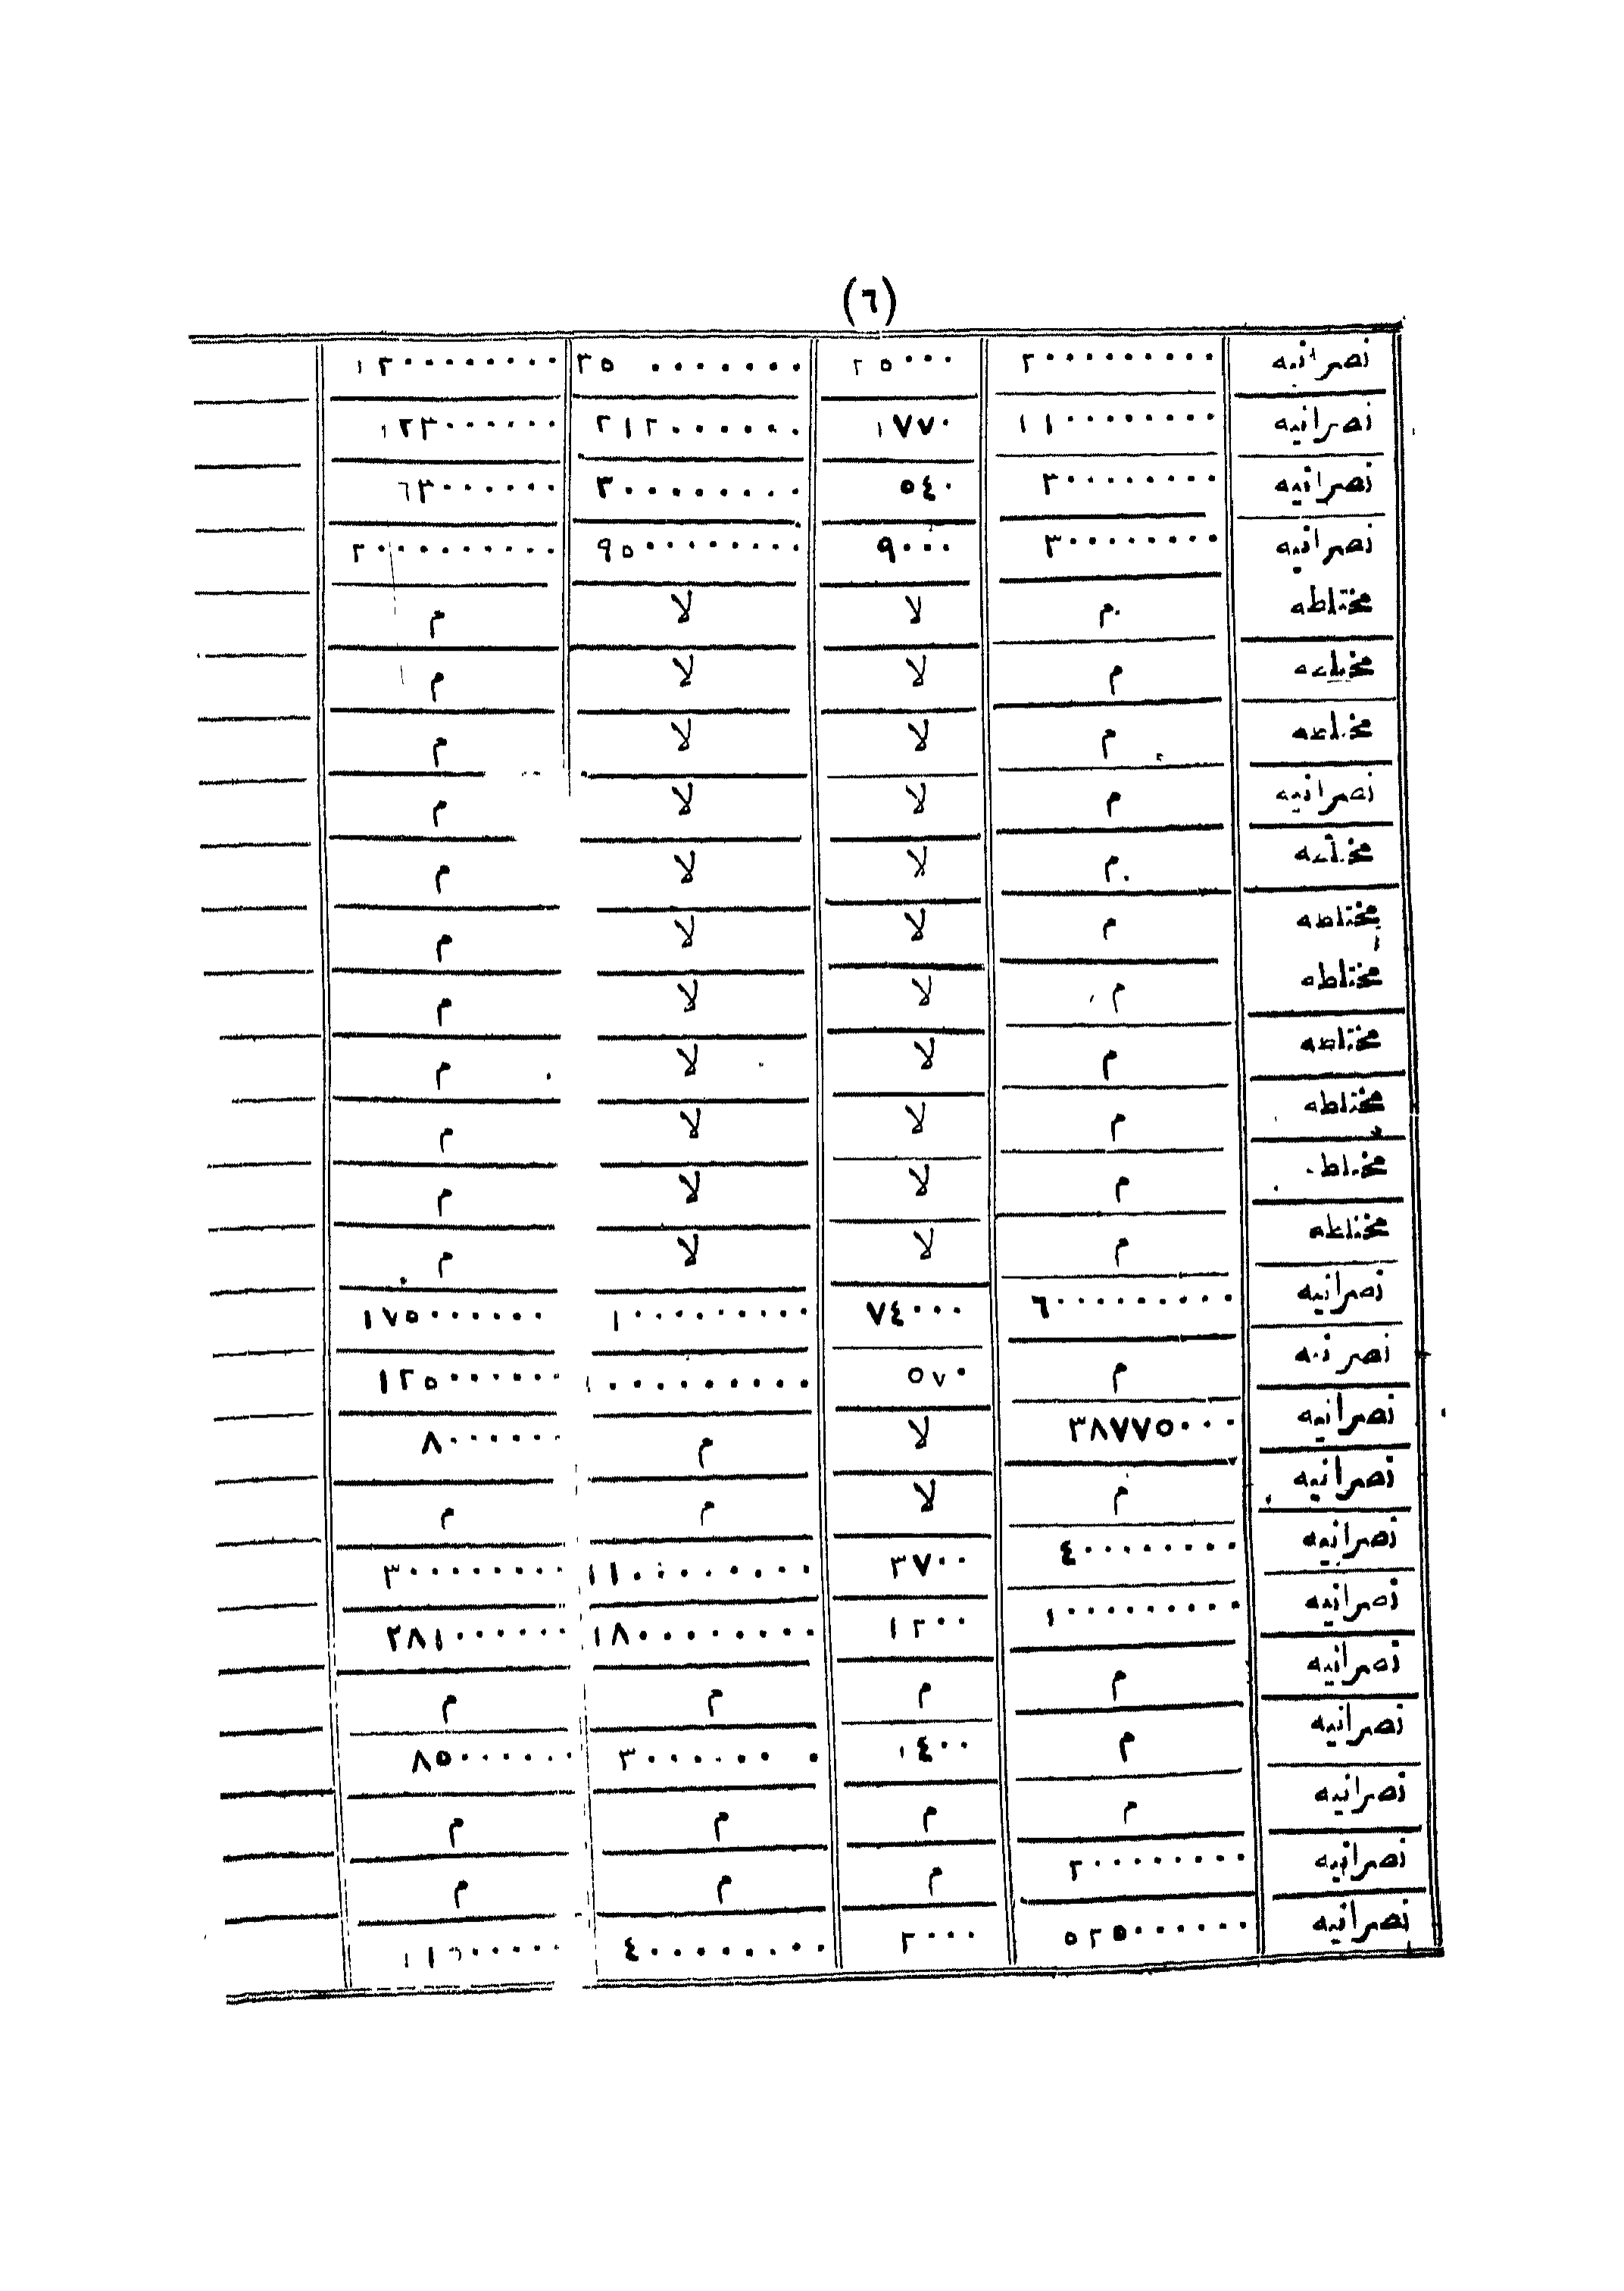 (٦)
نصرانيه ٢٠٠٠٠٠٠٠٠٠ ٢٥٠٠٠ ٣٥٠٠٠٠٠٠٠ ١٢٠٠٠٠٠٠٠٠
نصرانيه ١١٠٠٠٠٠٠٠٠ ١٧٧٠ ٢١٢٠٠٠٠٠٠ ١٢٣٠٠٠٠٠٠
نصرانيه ٣٠٠٠٠٠٠٠٠ ٥٤٠ ٣٠٠٠٠٠٠٠٠ ٦٣٠٠٠٠٠٠
نصرانيه ٣٠٠٠٠٠٠٠٠ ٩٠٠٠ ٩٥٠٠٠٠٠٠٠٠ ٢٠٠٠٠٠٠٠٠٠
مختلطه م لا لا م
مختلطه م لا لا م
مختلطه م لا لا م
نصرانيه م لا لا م
مختلطه م لا لا م
مختلطه م لا لا م
مختلطه م لا لا م
مختلطه م لا لا م
مختلطه م لا لا م
مختلطه م لا لا م
مختلطه م لا لا م
نصرانيه ٦٠٠٠٠٠٠٠٠٠ ٧٤٠٠٠ ١٠٠٠٠٠٠٠٠٠ ١٧٥٠٠٠٠٠٠
نصرانيه م ٥٧٠ ١٠٠٠٠٠٠٠٠٠ ١٢٥٠٠٠٠٠٠
نصرانيه ٣٨٧٧٥٠٠٠ لا م ٨٠٠٠٠٠٠
نصرانيه م لا م م
نصرانيه ٤٠٠٠٠٠٠٠٠ ٣٧٠٠ ١١٠٠٠٠٠٠٠٠ ٣٠٠٠٠٠٠٠٠
نصرانيه ١٠٠٠٠٠٠٠٠٠ ١٢٠٠ ١٨٠٠٠٠٠٠٠٠ ٢٨١٠٠٠٠٠٠
نصرانيه م م م م
نصرانيه م ١٤٠٠ ٣٠٠٠٠٠٠٠٠ ٨٥٠٠٠٠٠٠
نصرانيه م م م م
نصرانيه ٢٠٠٠٠٠٠٠٠ م م م
نصرانيه ٥٢٥٠٠٠٠٠٠ ٢٠٠٠ ٤٠٠٠٠٠٠٠٠